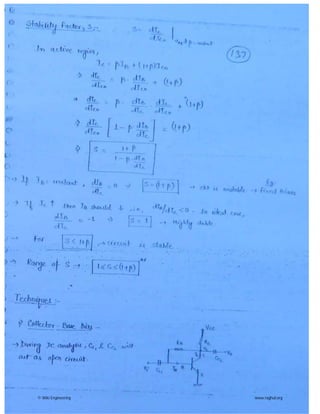 Stability Factor, S :-    S = dIc/dIco | VBE, β - const
(137)
In active region,
Ic = βIB + (1+β)Ico
⇒ dIc/dIco = β · dIB/dIco + (1+β)
⇒ dIc/dIco = β · dIB/dIc · dIc/dIco + (1+β)
⇒ dIc/dIco [1 - β · dIB/dIc] = (1+β)
⇒ S = 1+β / 1 - β · dIB/dIc
→ If IB = constant, dIB/dIc = 0 ⇒ S = (1+β) → ckt is unstable → Fixed Bias
Eg:
→ If Ic ↑ then IB should ↓ i.e., dIB/dIc < 0 . In ideal case,
dIB/dIc = -1 ⇒ S = 1 → Highly stable
→ For S < 1+β → circuit is stable
→ Range of S → 1 ≤ S ≤ (1+β)
Techniques :-
Collector - Base Bias -
Vcc
→ During DC analysis, will
act as open circuit.
© Wiki Engineering
www.raghul.org